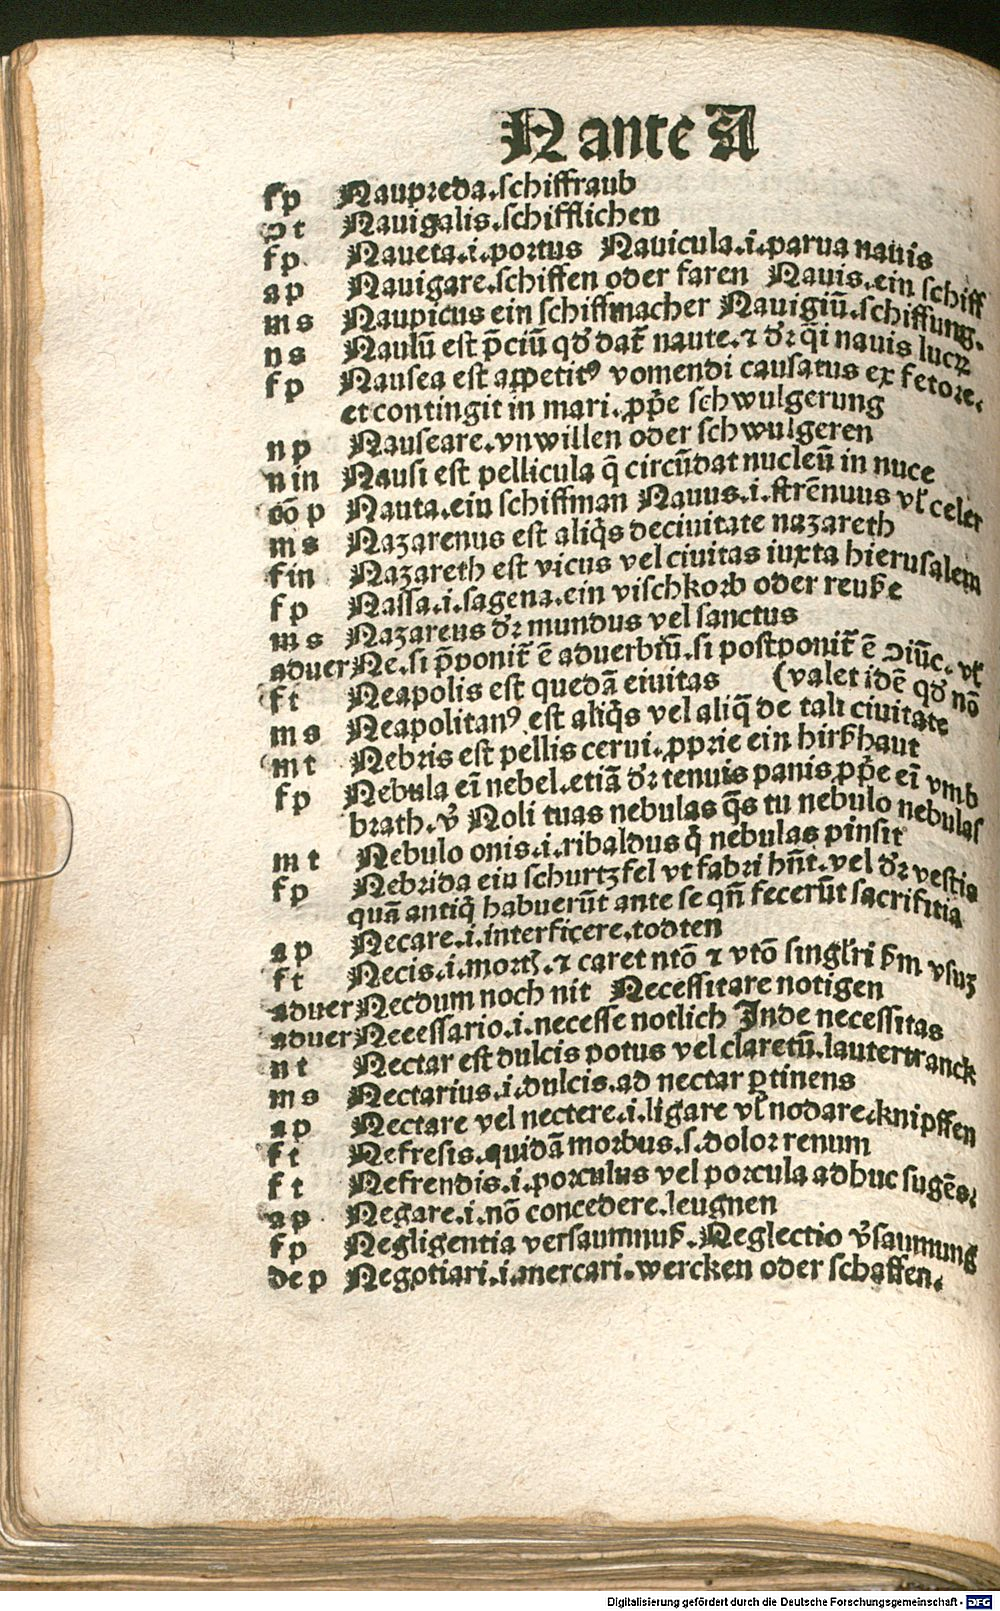 N ante A
f p Naupreda.schiffraub
o t Nauigalis.schifflichen
f p Naueta.i.portus Nauicula.i.parua nauis
a p Nauigare.schiffen oder faren Nauis.ein schiff
m s Naupicus ein schiffmacher Nauigiū.schiffung.
n s Naulū est p̄ciū qđ dat̄ naute.⁊ dr̄ q̄i nauis lucrꝫ
f p Nausea est appetitꝰ vomendi causatus ex fetore.
et contingit in mari.ꝓp̄e schwulgerung
n p Nauseare.vnwillen oder schwulgeren
n in Nausi est pellicula q̄ circūdat nucleū in nuce
cō p Nauta.ein schiffman Nauus.i.strēnuus vl̄ celer
m s Nazarenus est aliq̇s deciuitate nazareth
f in Nazareth est vicus vel ciuitas iuxta hierusalem
f p Nassa.i.sagena.ein vischkorb oder reuße
m s Nazareus dr̄ mundus vel sanctus
aduer Ne.si p̄ponit̄ ē aduerbiū.si postponit̄ ē ↄiūc.vl̄
f t Neapolis est quedā eiuitas (valet idē qđ nō
m s Neapolitanꝰ est aliq̇s vel aliq̄ de tali ciuitate
m t Nebris est pellis cerui.ꝓprie ein hirßhaut
f p Nebula eī nebel.etiā dr̄ tenuis panis ꝓp̄e eī vmb
brath.v̓ Noli tuas nebulas q̄s tu nebulo nebulas
m t Nebulo onis.i.ribaldus q̇ nebulas pinsit
f p Nebrida ein schurtzfel vt fabri hn̄t.vel dr̄ vestis
quā antiq̇ habuerūt ante se qn̄ fecerūt sacrifitia
a p Necare.i.interficere.todten
f t Necis.i.mortꝭ.⁊ caret ntō ⁊ vtō singl̓ri ßm vsuꝫ
aduer Necdum noch nit Necessitare notigen
aduer Necessario.i.necesse notlich Inde necessitas
n t Nectar est dulcis potus vel claretū.lautertranck
m s Nectarius.i.dulcis.ad nectar ꝑtinens
a p Nectare vel nectere.i.ligare vl̄ nodare.knipffen
f t Nefresis.quidā morbus.s.dolor renum
f t Nefrendis.i.porculus vel porcula adhuc sugēs.
a p Negare.i.nō concedere.leugnen
f p Negligentia versaumnuß.Neglectio v̓saumung
de p Negotiari.i.mercari.wercken oder schaffen.
Digitalisierung gefördert durch die Deutsche Forschungsgemeinschaft - DFG